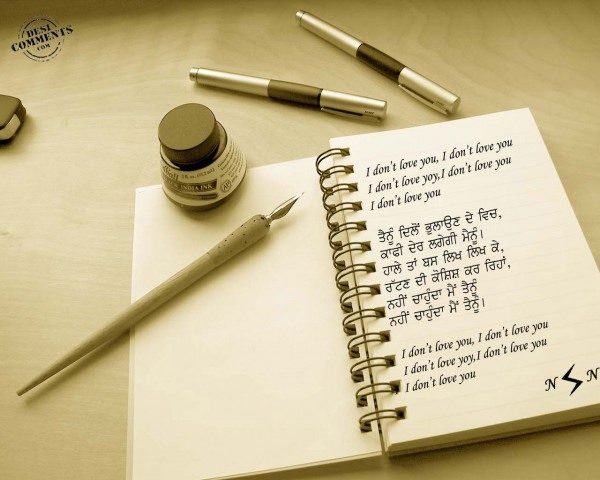 DESI
COMMENTS
.COM
INDIA INK
I don't love you, I don't love you
I don't love yoy,I don't love you
I don't love you
ਤੈਨੂੰ ਦਿਲੋਂ ਭੁਲਾਉਣ ਦੇ ਵਿਚ,
ਕਾਫੀ ਦੇਰ ਲਗੇਗੀ ਮੈਨੂੰ।
ਹਾਲੇ ਤਾਂ ਬਸ ਲਿਖ ਲਿਖ ਕੇ,
ਰੱਟਣ ਦੀ ਕੋਸ਼ਿਸ਼ ਕਰ ਰਿਹਾਂ,
ਨਹੀਂ ਚਾਹੁੰਦਾ ਮੈਂ ਤੈਨੂੰ
ਨਹੀਂ ਚਾਹੁੰਦਾ ਮੈਂ ਤੈਨੂੰ।
I don't love you, I don't love you
I don't love yoy,I don't love you
I don't love you
N N